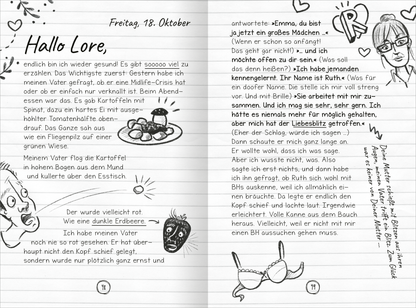 Freitag, 18. Oktober
Hallo Lore,
endlich bin ich wieder gesund! Es gibt sooooo viel zu
erzählen. Das Wichtigste zuerst: Gestern habe ich
meinen Vater gefragt, ob er eine Midlife-Crisis hat
oder ob er einfach nur verknallt ist. Beim Abend-
essen war das. Es gab Kartoffeln mit
Spinat, dazu ein hartes Ei mit ausge-
höhlter Tomatenhälfte oben-
drauf. Das Ganze sah aus
wie ein Fliegenpilz auf einer
grünen Wiese.
Meinem Vater flog die Kartoffel
in hohem Bogen aus dem Mund
und kullerte über den Esstisch.
Der wurde vielleicht rot.
Wie eine dunkle Erdbeere.
Ich habe meinen Vater
noch nie so rot gesehen. Er hat über-
haupt nicht den Kopf schief gelegt,
sondern wurde nur plötzlich ganz ernst und
98
antwortete: »Emma, du bist
ja jetzt ein großes Mädchen ..«
(Wenn er schon so anfängt!
Das geht gar nicht!) » .. und ich
möchte offen zu dir sein.« (Was soll
das denn heißen?) »Ich habe jemanden
kennengelernt. Ihr Name ist Ruth.« (Was für
ein doofer Name. Die stelle ich mir voll streng
vor. Und mit Brille) »Sie arbeitet mit mir zu-
sammen. Und ich mag sie sehr, sehr gern. Ich
hätte es niemals mehr für möglich gehalten,
aber mich hat der Liebesblitz getroffen.«
(Eher der Schlag, würde ich sagen ..)
Dann schaute er mich ganz lange an.
Er wollte wohl, dass ich was sage.
Aber ich wusste nicht, was. Also
sagte ich erst nichts, und dann habe
ich ihn gefragt, ob Ruth sich wohl mit
BHs auskenne, weil ich allmählich ei-
nen bräuchte. Da legte er endlich den
Kopf schief und lachte laut. Irgendwie
erleichtert. Volle Kanne aus dem Bauch
heraus. Vielleicht, weil er nicht mit mir
einen BH aussuchen gehen muss.
R
99